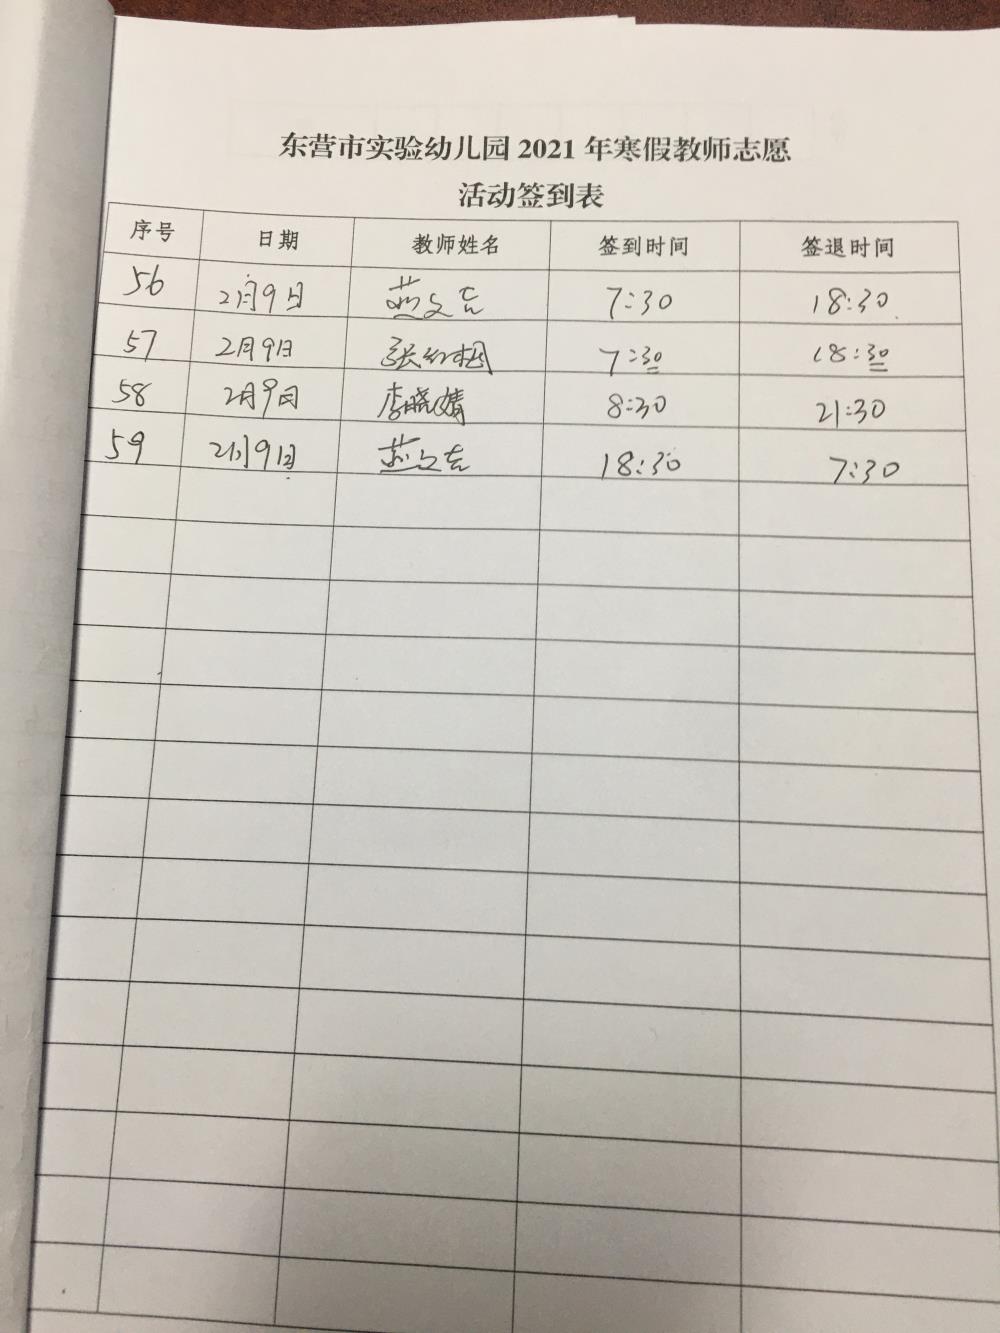 东营市实验幼儿园 2021 年寒假教师志愿
活动签到表
序号 日期 教师姓名 签到时间 签退时间
56 2月9日 7:30 18:30
57 2月9日 张 7:30 18:30
58 2月9日 李晓婧 8:30 21:30
59 2月9日 18:30 7:30